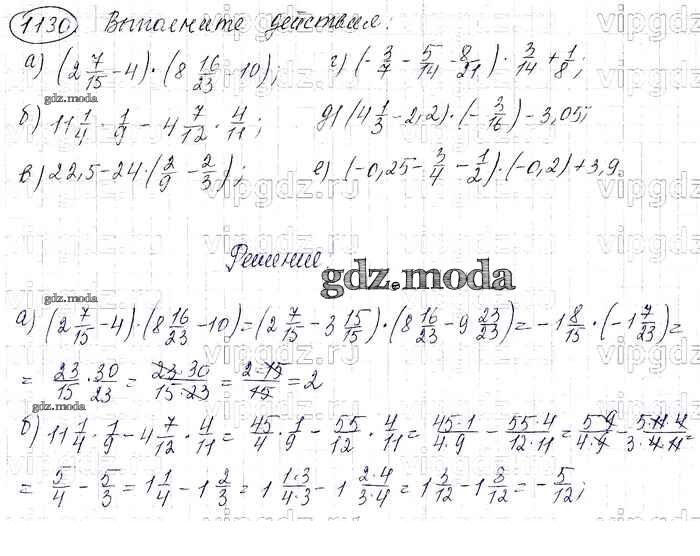 1130 Выполните действия:
а) (2 7/15 - 4) · (8 16/23 - 10); г) (- 3/7 - 5/14 - 8/21) · 3/14 + 1/8;
gdz.moda
б) 11 1/4 · 1/9 - 4 7/12 · 4/11; д) (4 1/3 - 2,2) · (- 3/16) - 3,05;
в) 22,5 - 24 · (2/9 - 2/3); е) (-0,25 - 3/4 - 1/2) · (-0,2) + 3,9.
Решение.
gdz.moda
а) (2 7/15 - 4) · (8 16/23 - 10) = (2 7/15 - 3 15/15) · (8 16/23 - 9 23/23) = - 1 8/15 · (- 1 7/23) =
= 23/15 · 30/23 = 23·30/15·23 = 2·15/15 = 2
gdz.moda
б) 11 1/4 · 1/9 - 4 7/12 · 4/11 = 45/4 · 1/9 - 55/12 · 4/11 = 45·1/4·9 - 55·4/12·11 = 5·9/4·9 - 5·11·4/3·4·11 =
= 5/4 - 5/3 = 1 1/4 - 1 2/3 = 1 1·3/4·3 - 1 2·4/3·4 = 1 3/12 - 1 8/12 = - 5/12;